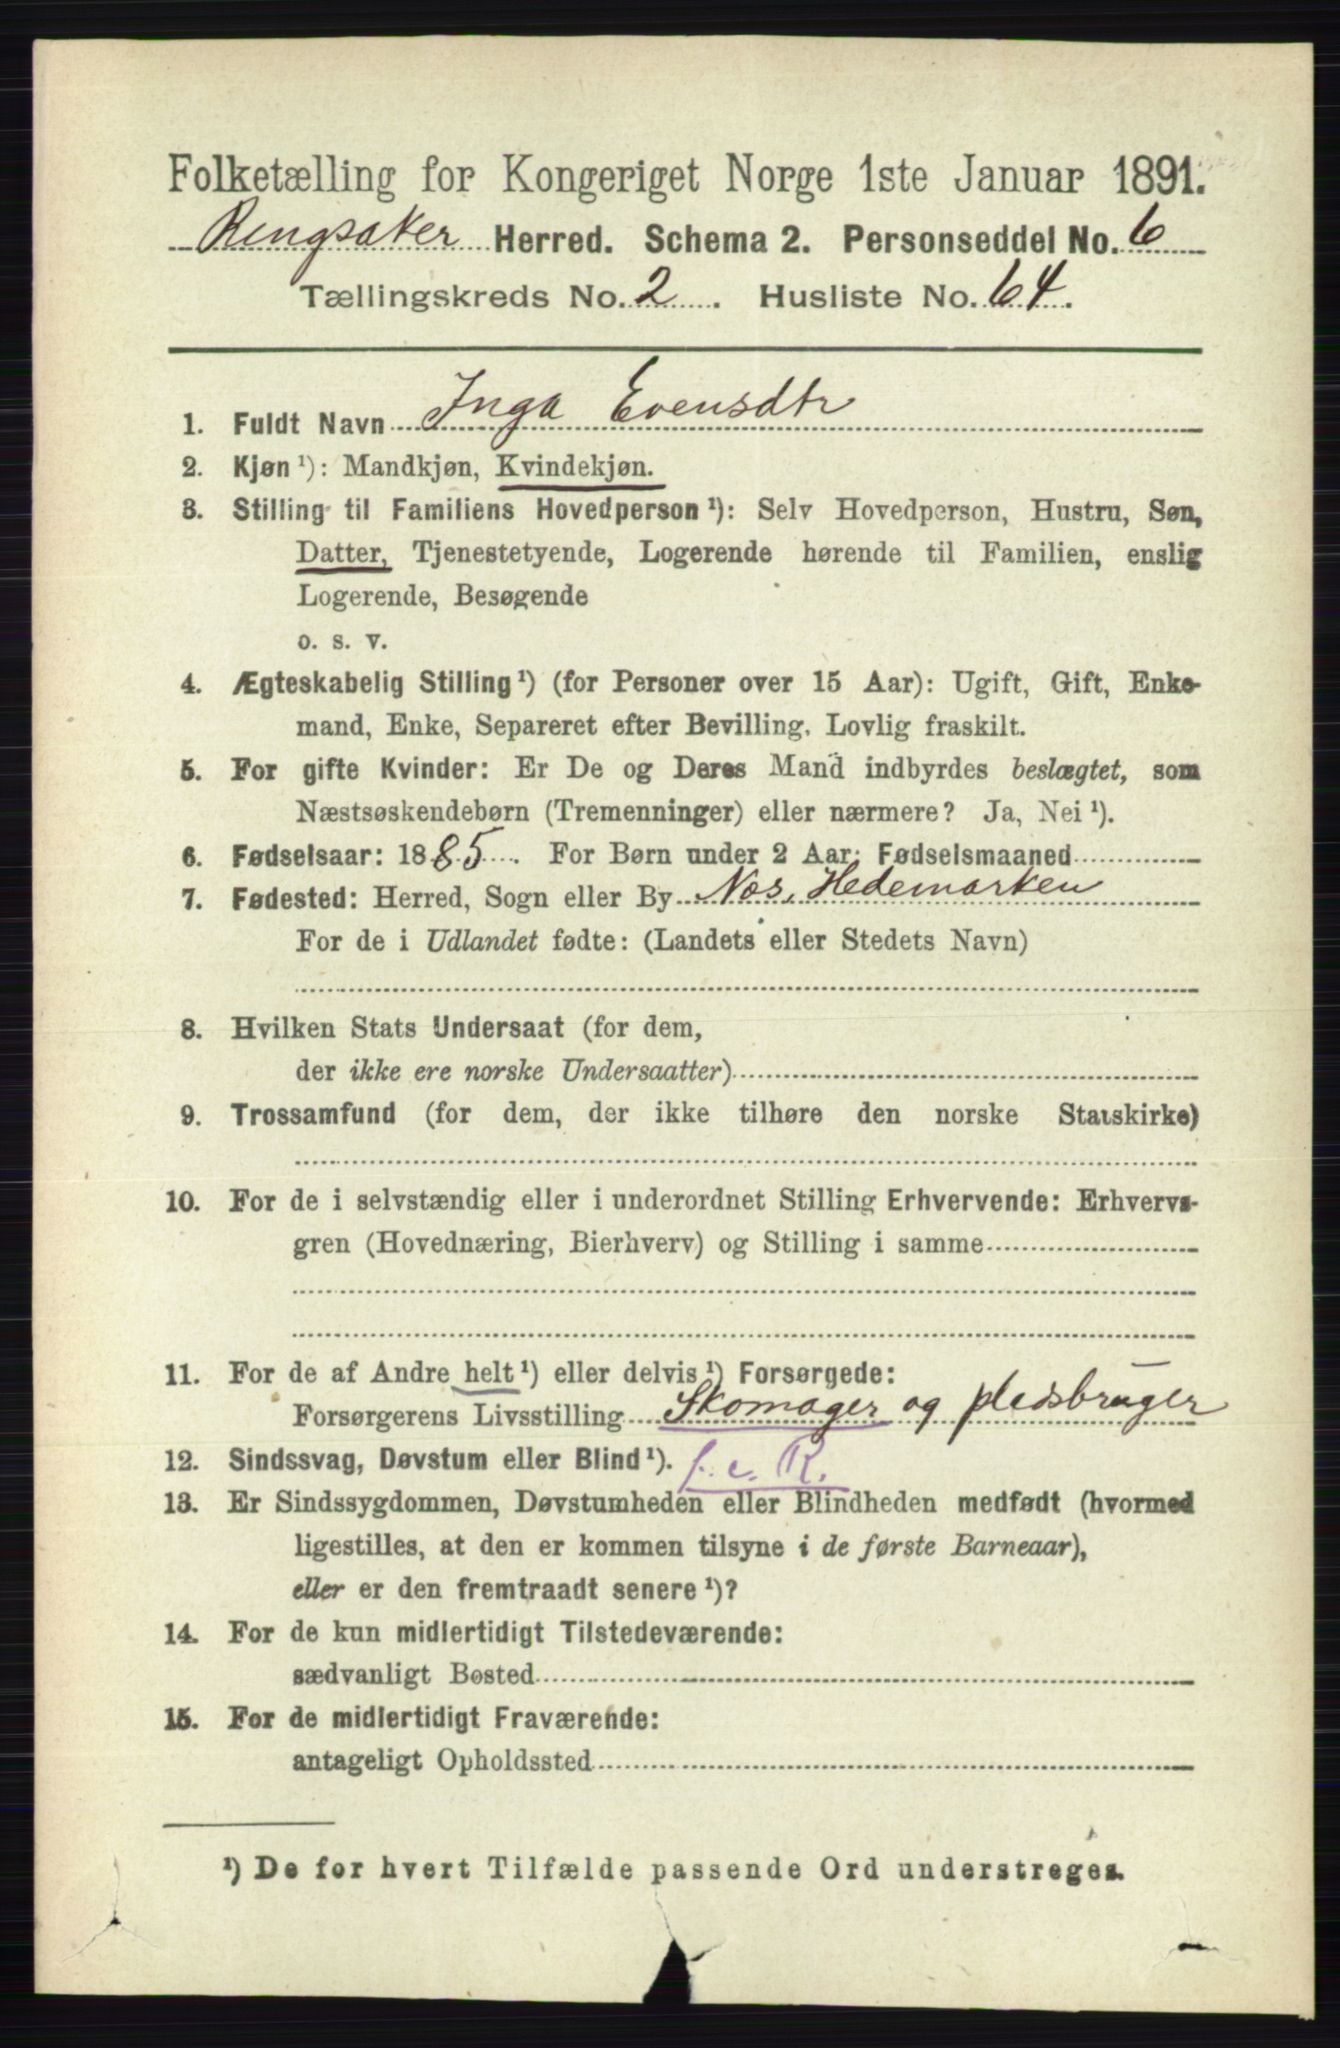 Folketælling for Kongeriget Norge 1ste Januar 1891.
Ringsaker Herred. Schema 2. Personseddel No. 6
Tællingskreds No. 2. Husliste No. 64.
1. Fuldt Navn Inga Evensdtr
2. Kjøn ¹): Mandkjøn, Kvindekjøn.
3. Stilling til Familiens Hovedperson ¹): Selv Hovedperson, Hustru, Søn,
Datter, Tjenestetyende, Logerende hørende til Familien, enslig
Logerende, Besøgende
o. s. v.
4. Ægteskabelig Stilling ¹) (for Personer over 15 Aar): Ugift, Gift, Enke-
mand, Enke, Separeret efter Bevilling. Lovlig fraskilt.
5. For gifte Kvinder: Er De og Deres Mand indbyrdes beslægtet, som
Næstsøskendebørn (Tremenninger) eller nærmere? Ja, Nei ¹).
6. Fødselsaar: 1885. For Børn under 2 Aar: Fødselsmaaned
7. Fødested: Herred, Sogn eller By Næs, Hedemarken
For de i Udlandet fødte: (Landets eller Stedets Navn)
8. Hvilken Stats Undersaat (for dem,
der ikke ere norske Undersaatter)
9. Trossamfund (for dem, der ikke tilhøre den norske Statskirke)
10. For de i selvstændig eller i underordnet Stilling Erhvervende: Erhvervs-
gren (Hovednæring, Bierhverv) og Stilling i samme
11. For de af Andre helt ¹) eller delvis ¹) Forsørgede:
Forsørgerens Livsstilling Skomager og pladsbruger
12. Sindssvag, Døvstum eller Blind ¹).
13. Er Sindssygdommen, Døvstumheden eller Blindheden medfødt (hvormed
ligestilles, at den er kommen tilsyne i de første Barneaar),
eller er den fremtraadt senere ¹)?
14. For de kun midlertidigt Tilstedeværende:
sædvanligt Bosted
15. For de midlertidigt Fraværende:
antageligt Opholdssted
¹) De for hvert Tilfælde passende Ord understreges.